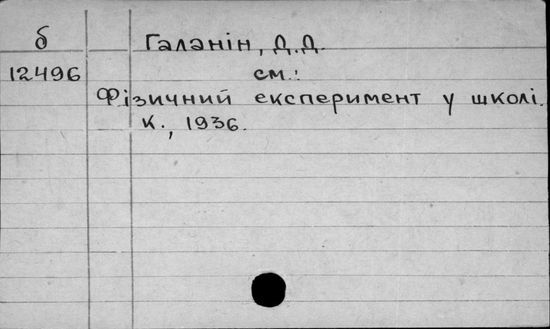 б
Галанін, Д.Д.
12496
см.:
Фізичний експеримент у школі.
К., 1936.